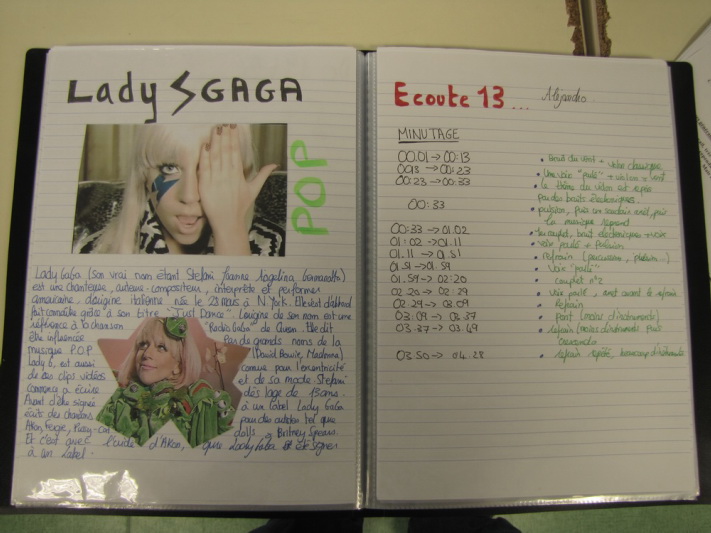 Lady GAGA
POP
Lady Gaga (son vrai nom étant Stefani Joanne Angelina Germanotta)
est une chanteuse, auteur-compositeur, interprète et performer
américaine, d'origine italienne née le 28 mars à N York. Elle s'est d'abord
fait connaître grâce à son titre "Just Dance". L'origine de son nom est une
référence à la chanson "Radio Gaga" de Queen. Elle dit
être influencée par de grands noms de la
musique POP (David Bowie, Madonna)
Lady G, est aussi connue pour l'excentricité
de ses clips vidéos et de sa mode. Stefani
commença à écrire dès l'âge de 13 ans.
Avant d'être signée à un label Lady Gaga
écrit des chansons pour des artistes tel que
Akon, Fergie, Pussy-Cat dolls, Britney Spears.
Et c'est avec l'aide d'Akon, que Lady Gaga est signée
à un Label.
Ecoute 13...
Alejandro
MINUTAGE
00.01 → 00:13
00:13 → 00:23
00:23 → 00:33
00:33
00:33 → 01.02
01:02 → 01.11
01.11 → 01.51
01.51 → 01.59
01.59 → 02:20
02.20 → 02:29
02.29 → 03.09
03:09 → 03:37
03.37 → 03.49
03.50 → 04.28
Bruit du vent + violon classique
Une voix "parlé" + violon + vent
le thème du violon est répété
par des bruits électroniques
pulsion, puis un soudain arrêt, puis
la musique reprend
couplet, bruit électroniques + voix
voix parlé + refrain
refrain
Voix "parlé"
couplet n°2
voix parlé, arrêt avant le refrain
refrain
pont (moins d'instruments)
refrain (moins d'instruments puis
refrain répété, beaucoup d'instruments